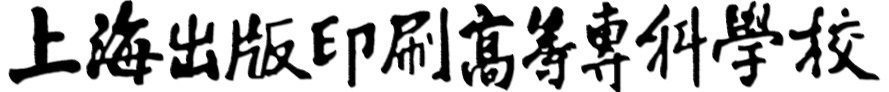 上海出版印刷高等專科學校